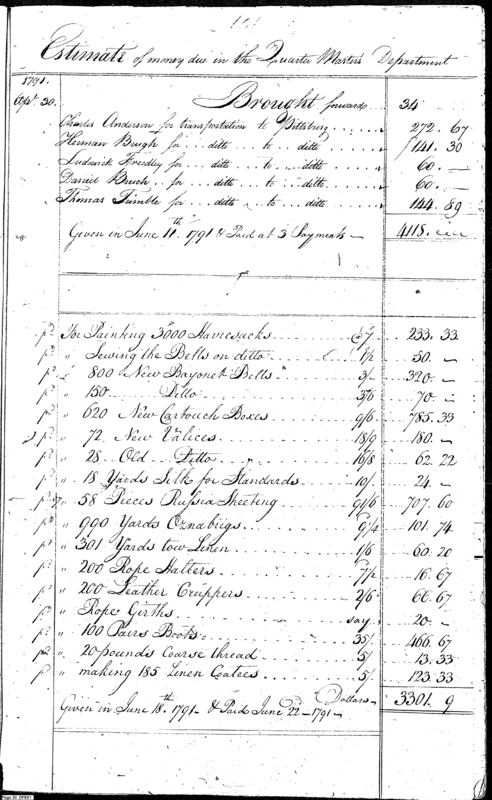 Estimate of money due in the Quarter Masters Department
1791.
Apl. 30. Brought forward... 34
Charles Anderson for transportation to Pittsburg..... 272. 67
Herman Bough for... ditto.... to.... ditto..... 141. 30
Ludwick Friedley for... ditto.... to.... ditto..... 60. —
Daniel Bruch.. for... ditto.... to.... ditto..... 60. —
Thomas Tumble for... ditto.... to.... ditto..... 144. 89
Given in June 11.th 1791 & Paid at 3 Payments — 4118.
pd For Painting 3000 Haversacks...... 233. 33
pd " Sewing the Belts on ditto...... 1/2 50. —
pd " 800 New Bayonet Belts "...... 3/- 320. —
pd " 150...... Ditto...... 3/6 70. —
pd " 620 New Cartouch Boxes...... 9/6 785. 33
pd " 72 New Valices...... 18/9 180. —
pd " 28 Old... Ditto...... 16/8 62. 22
pd " 18 Yards Silk for Standards... 10/. 24. —
pd " 58 Pieces Russia Sheeting...... 91/6 707. 60
pd " 990 Yards Oznabrigs...... 101. 74
pd " 301 Yards tow Linen...... 1/6 60. 20
pd " 200 Rope Halters...... 7/2 16. 67
pd " 200 Leather Cruppers...... 2/6 66. 67
pd " Rope Girths...... say.. 20. —
pd " 100 Pairs Boots...... 35/ 466. 67
pd " 20 pounds Coarse thread...... 5/ 13. 33
pd " making 185 Linen Coatees...... 5/. 123. 33
Dollars 3301. 9
Given in June 18.th 1791 & Paid June 22 — 1791 —